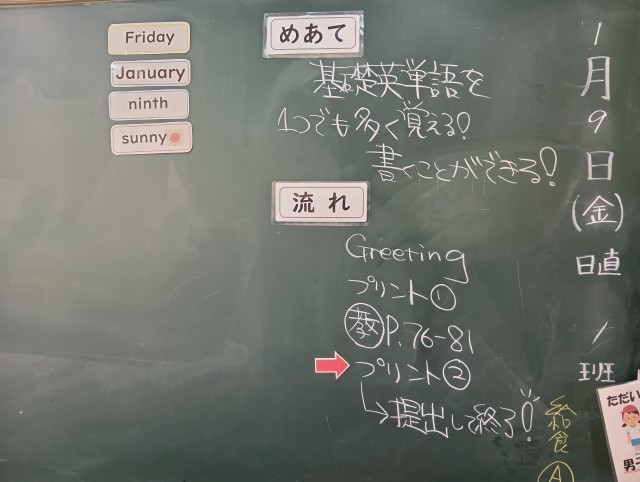 Friday
January
ninth
sunny
めあて
基礎英単語を
1つでも多く覚える!
書くことができる!
流れ
Greeting
プリント①
教P.76-81
プリント②
↳提出して終了!
1月9日(金)
日直
1班
給食
A
ただい
男子